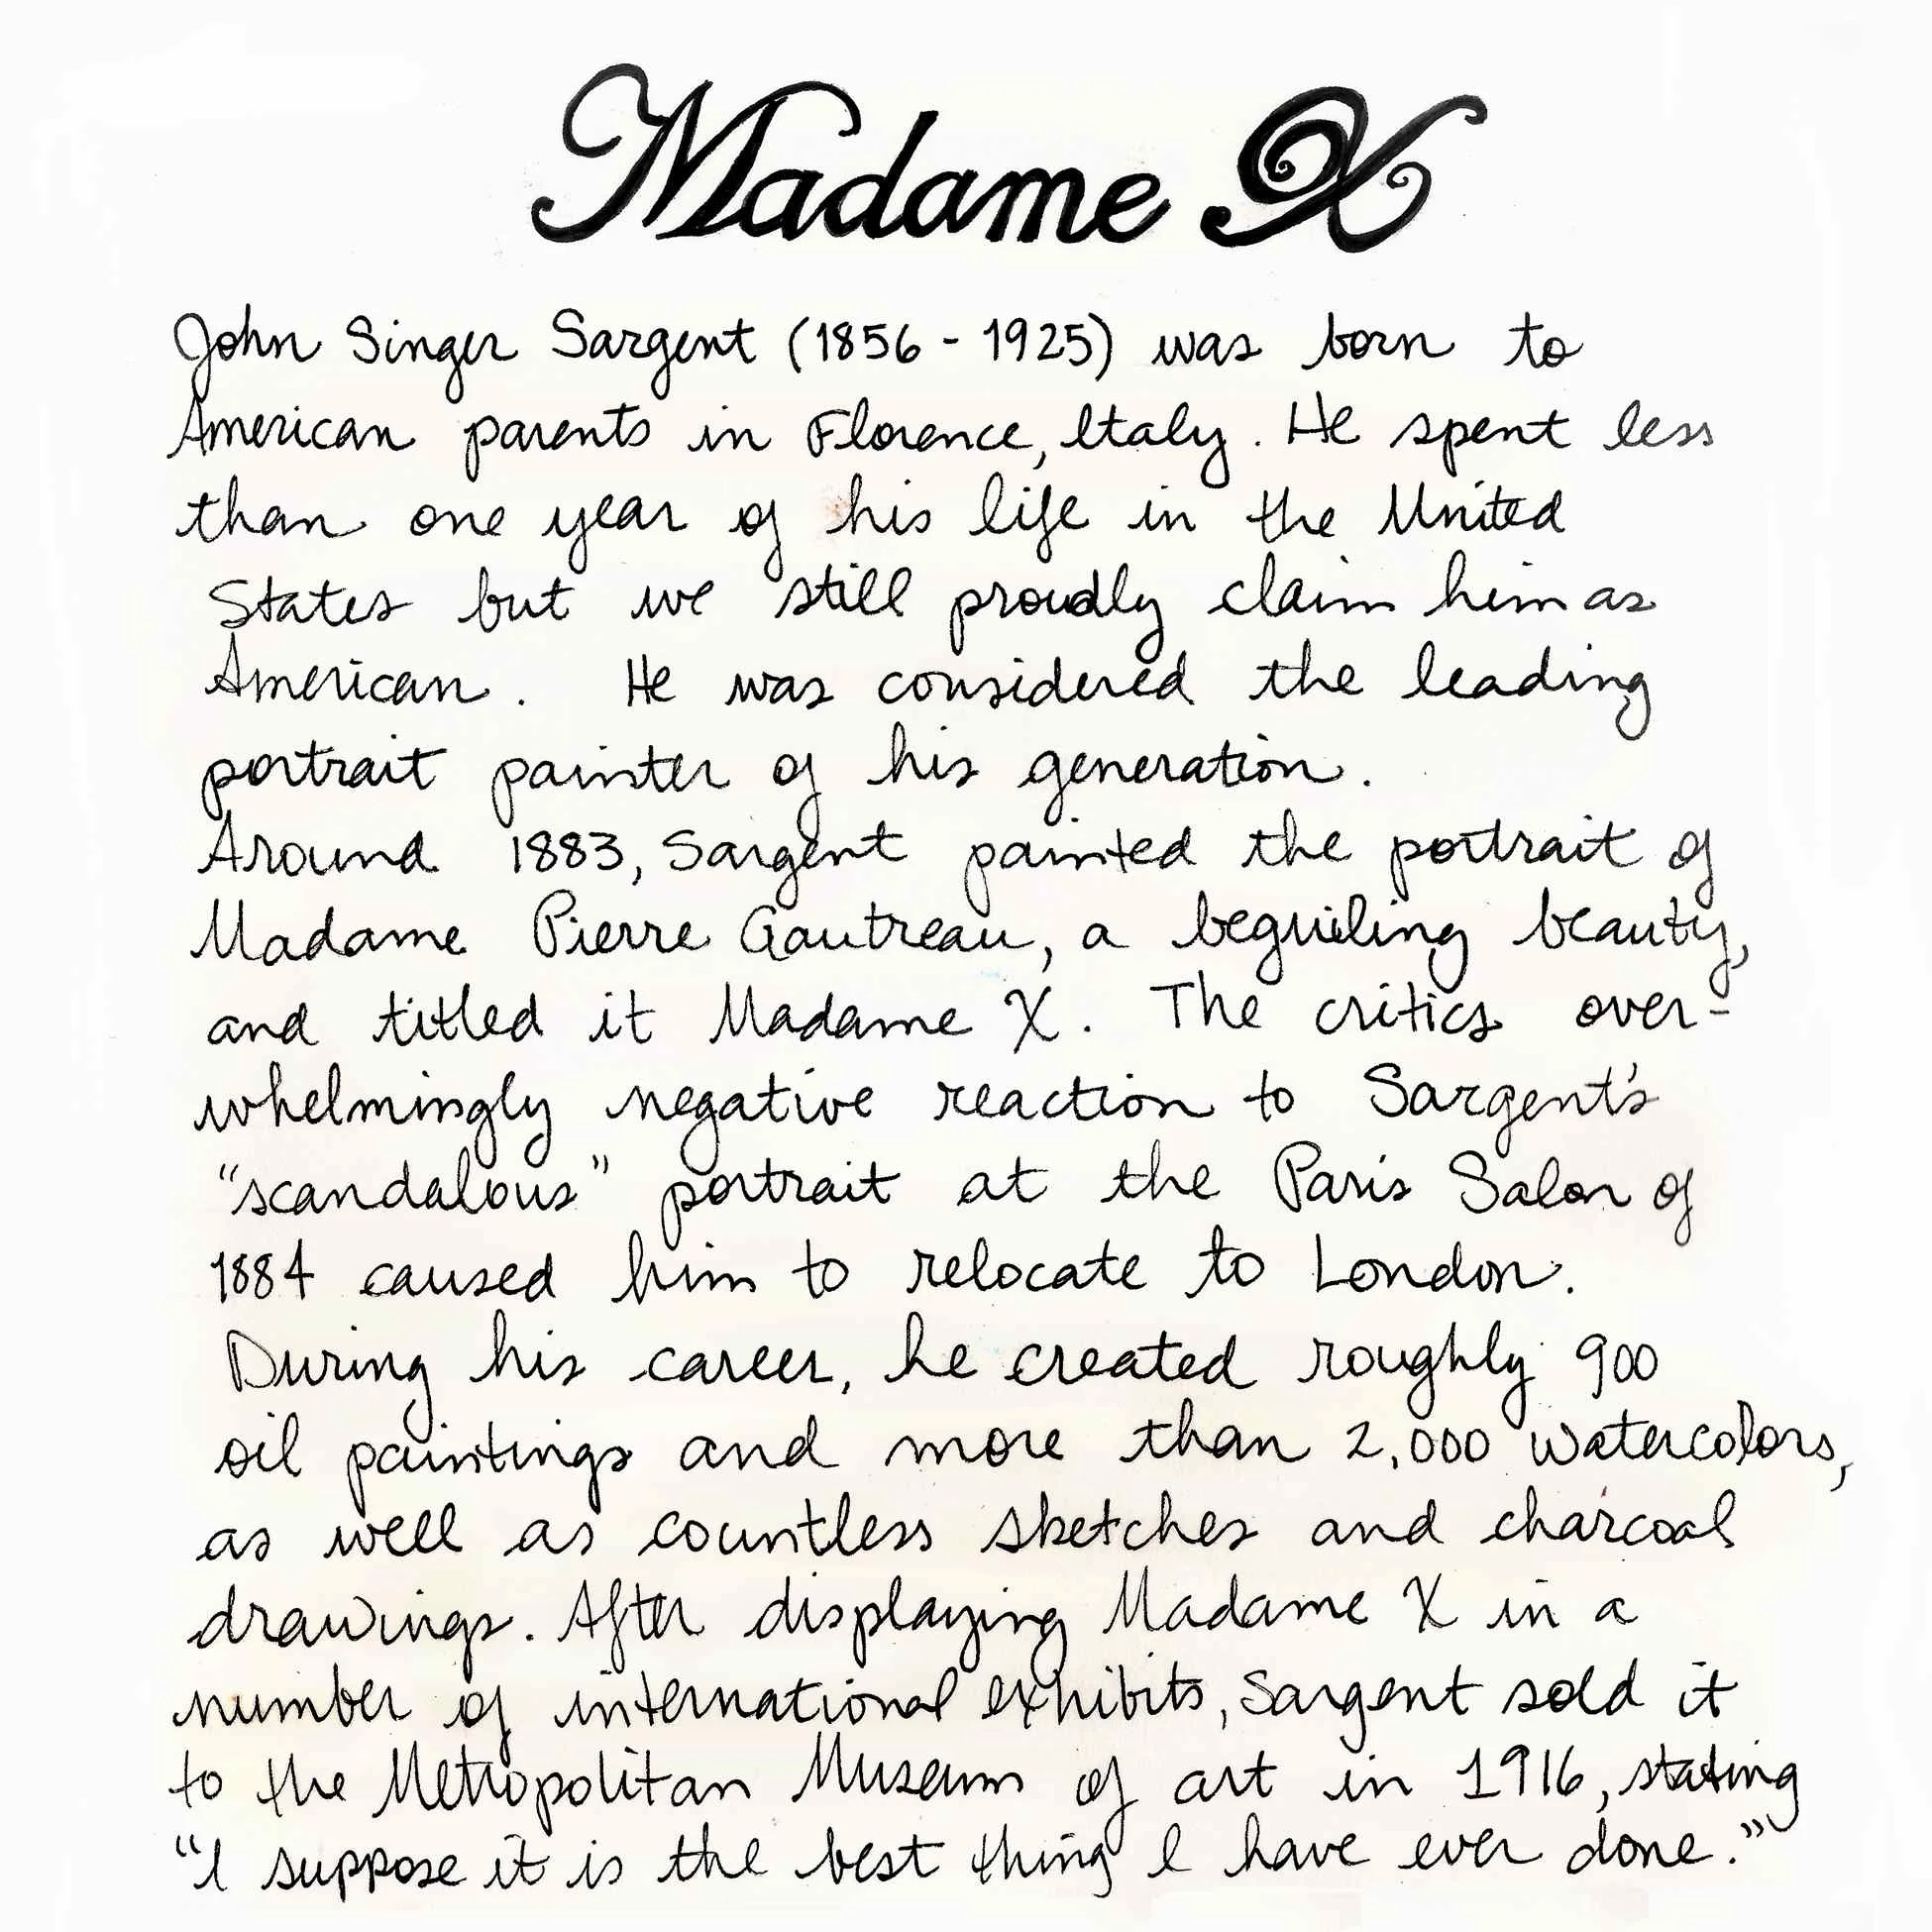 Madame X
John Singer Sargent (1856 - 1925) was born to
American parents in Florence, Italy. He spent less
than one year of his life in the United
States but we still proudly claim him as
American. He was considered the leading
portrait painter of his generation.
Around 1883, Sargent painted the portrait of
Madame Pierre Gautreau, a beguiling beauty,
and titled it Madame X. The critics over-
whelmingly negative reaction to Sargent's
"scandalous" portrait at the Paris Salon of
1884 caused him to relocate to London.
During his career, he created roughly 900
oil paintings and more than 2,000 watercolors,
as well as countless sketches and charcoal
drawings. After displaying Madame X in a
number of international exhibits, Sargent sold it
to the Metropolitan Museum of art in 1916, stating
"I suppose it is the best thing I have ever done."